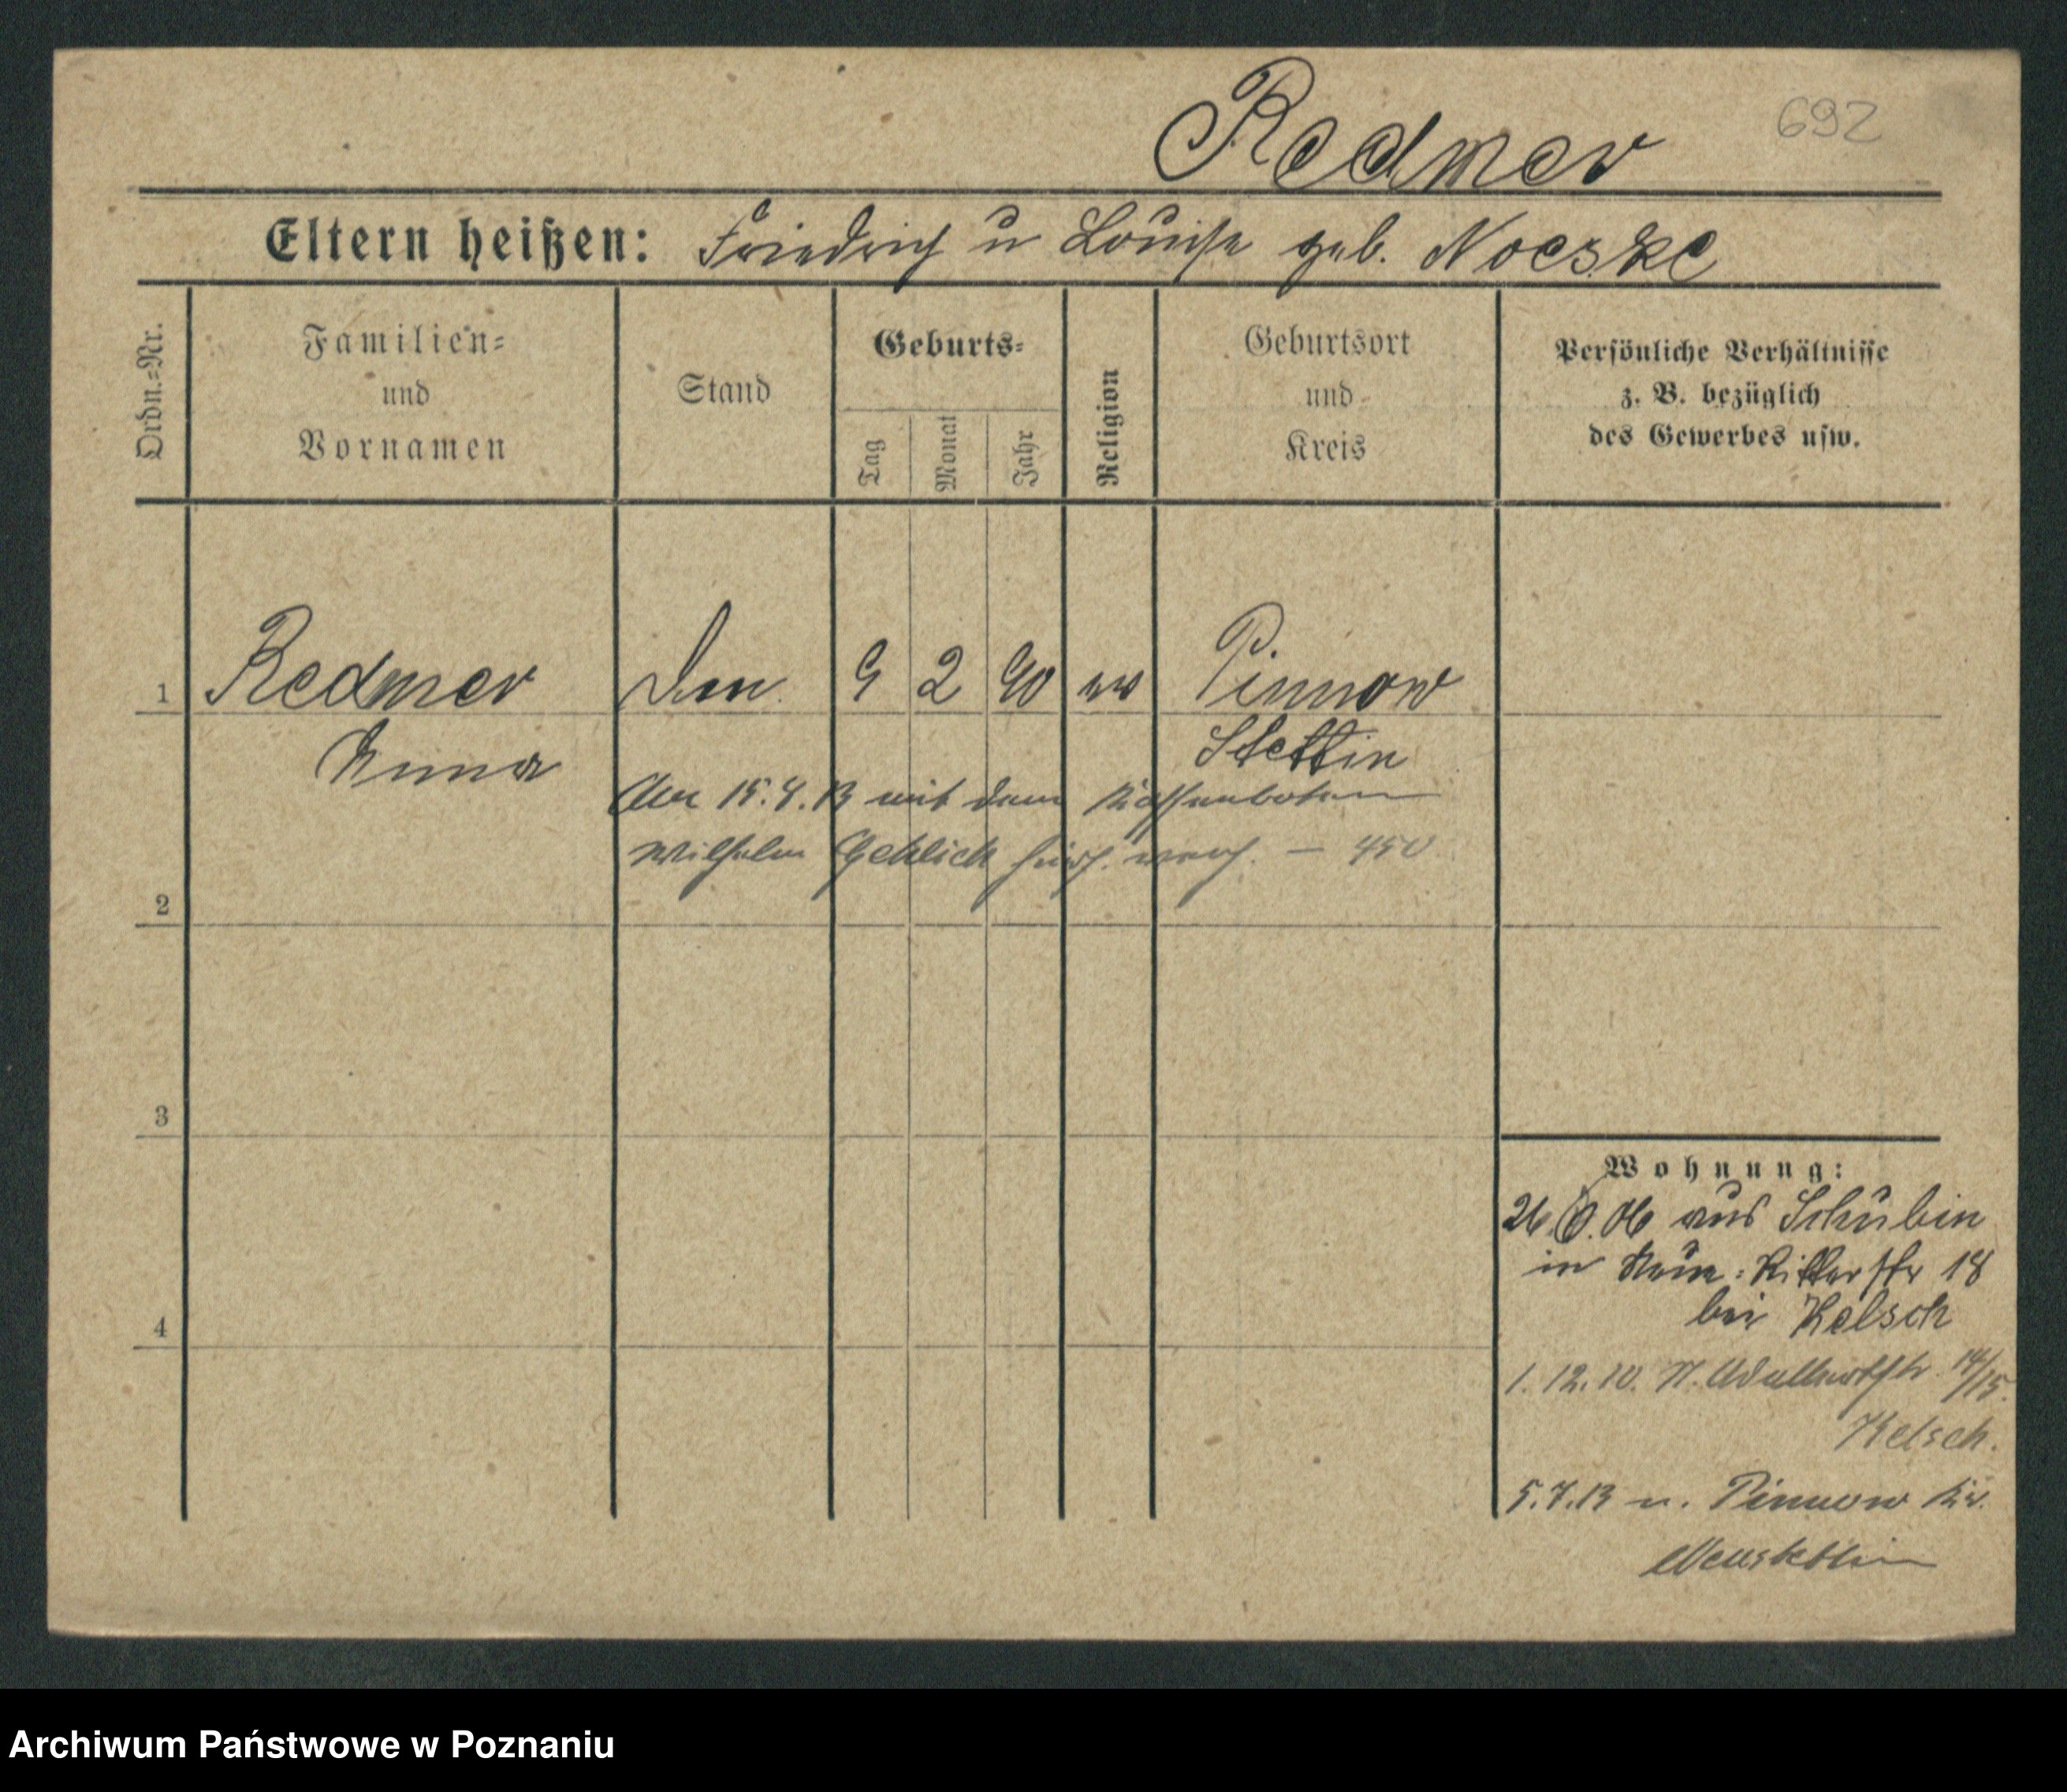 Redmer
692
Eltern heißen: Friedrich u Louise geb. Noeske
Ordn.=Nr.
Familien=
und
Vornamen
Stand
Geburts=
Tag
Monat
Jahr
Religion
Geburtsort
und
Kreis
Persönliche Verhältnisse
z. B. bezüglich
des Gewerbes usw.
1 Redmer 9 2 90 ev Pinnow
Anna Stettin
Am 15.4.13 mit dem Kassenboten
Wilhelm Gehlich hier verh. — 450
2
3
4
Wohnung:
aus Schubin
in Ritterstr 18
bei Kelsch
1. 12. 10. 14/15.
Kelsch.
5.4.13 n. Pinnow Kr.
Neustettin
Archiwum Państwowe w Poznaniu